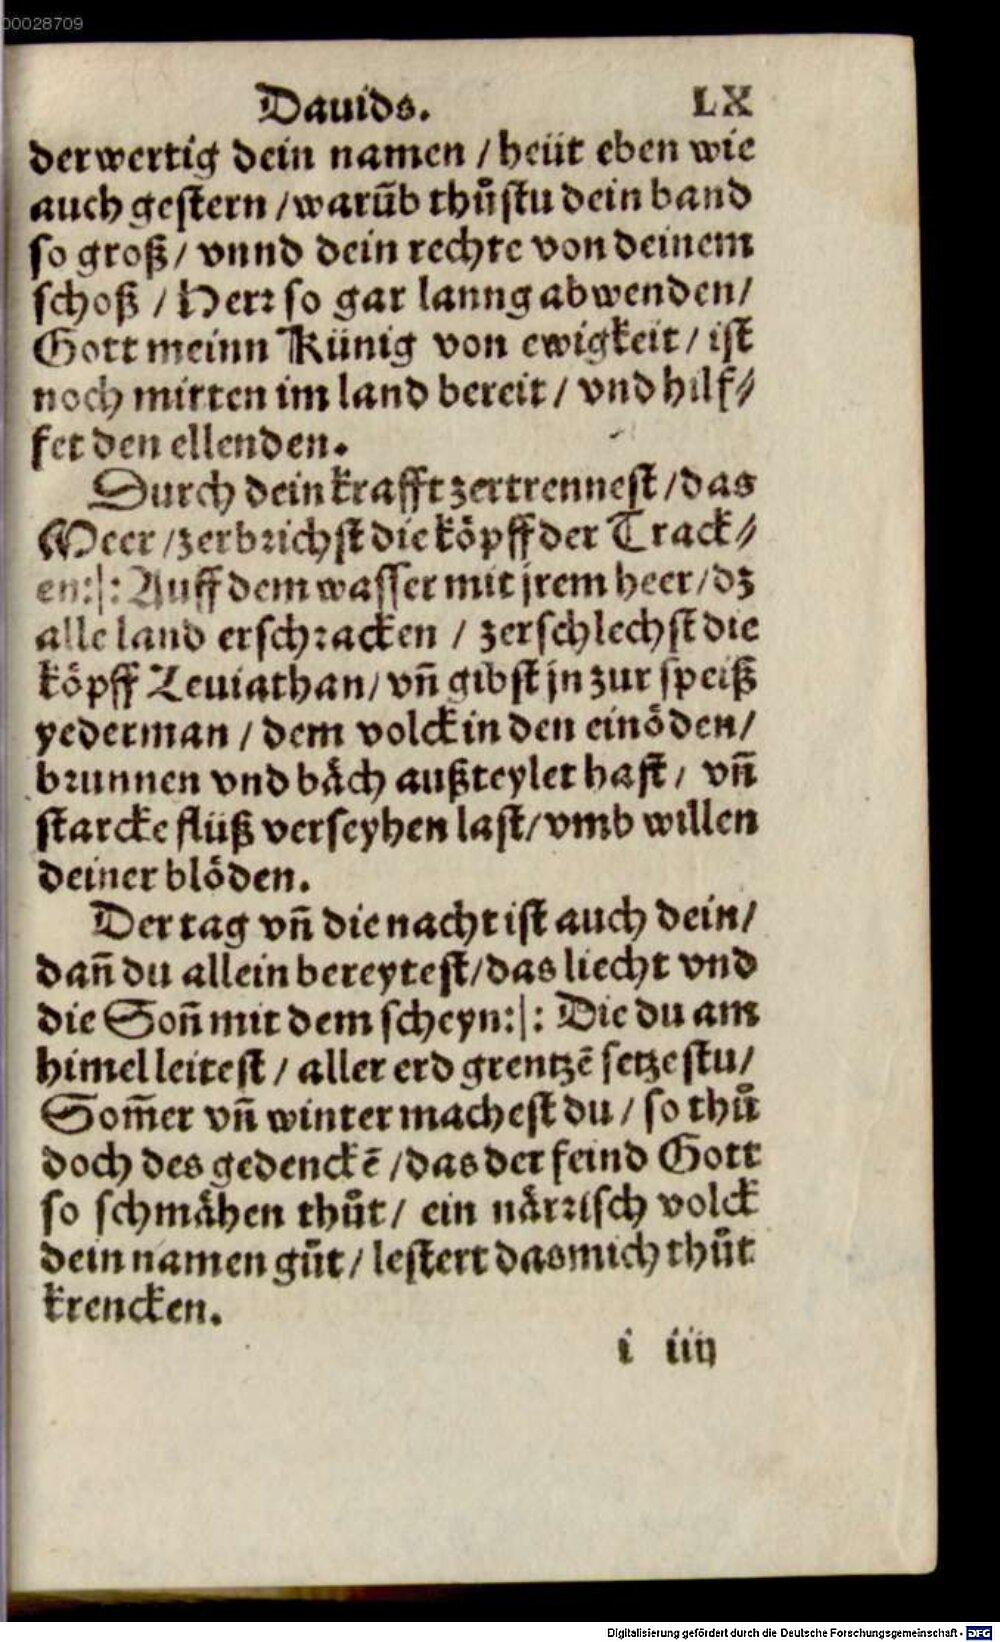 00028709
Dauids. LX
derwertig dein namen / heüt eben wie
auch gestern / warūb thůstu dein hand
so groß / vnnd dein rechte von deinem
schoß / Herr so gar lanng abwenden /
Gott meinn Künig von ewigkeit / ist
noch mitten im land bereit / vnd hilf⸗
fet den ellenden.
Durch dein krafft zertrennest / das
Meer / zerbrichst die köpff der Track⸗
en:|: Auff dem wasser mit jrem heer / dz
alle land erschracken / zerschlechst die
köpff Leuiathan / vñ gibst jn zur speiß
yederman / dem volck in den einöden /
brunnen vnd bäch außteylet hast / vñ
starcke flüß verseyhen last / vmb willen
deiner blöden.
Der tag vñ die nacht ist auch dein /
dañ du allein bereytest / das liecht vnd
die Soñ mit dem scheyn:|: Die du am
himel leitest / aller erd grentzē setzestu /
Som̄er vñ winter machest du / so thů
doch des gedenckē / das der feind Gott
so schmähen thůt / ein närrisch volck
dein namen gůt / lestert das mich thůt
krencken.
i iiij
Digitalisierung gefördert durch die Deutsche Forschungsgemeinschaft - DFG